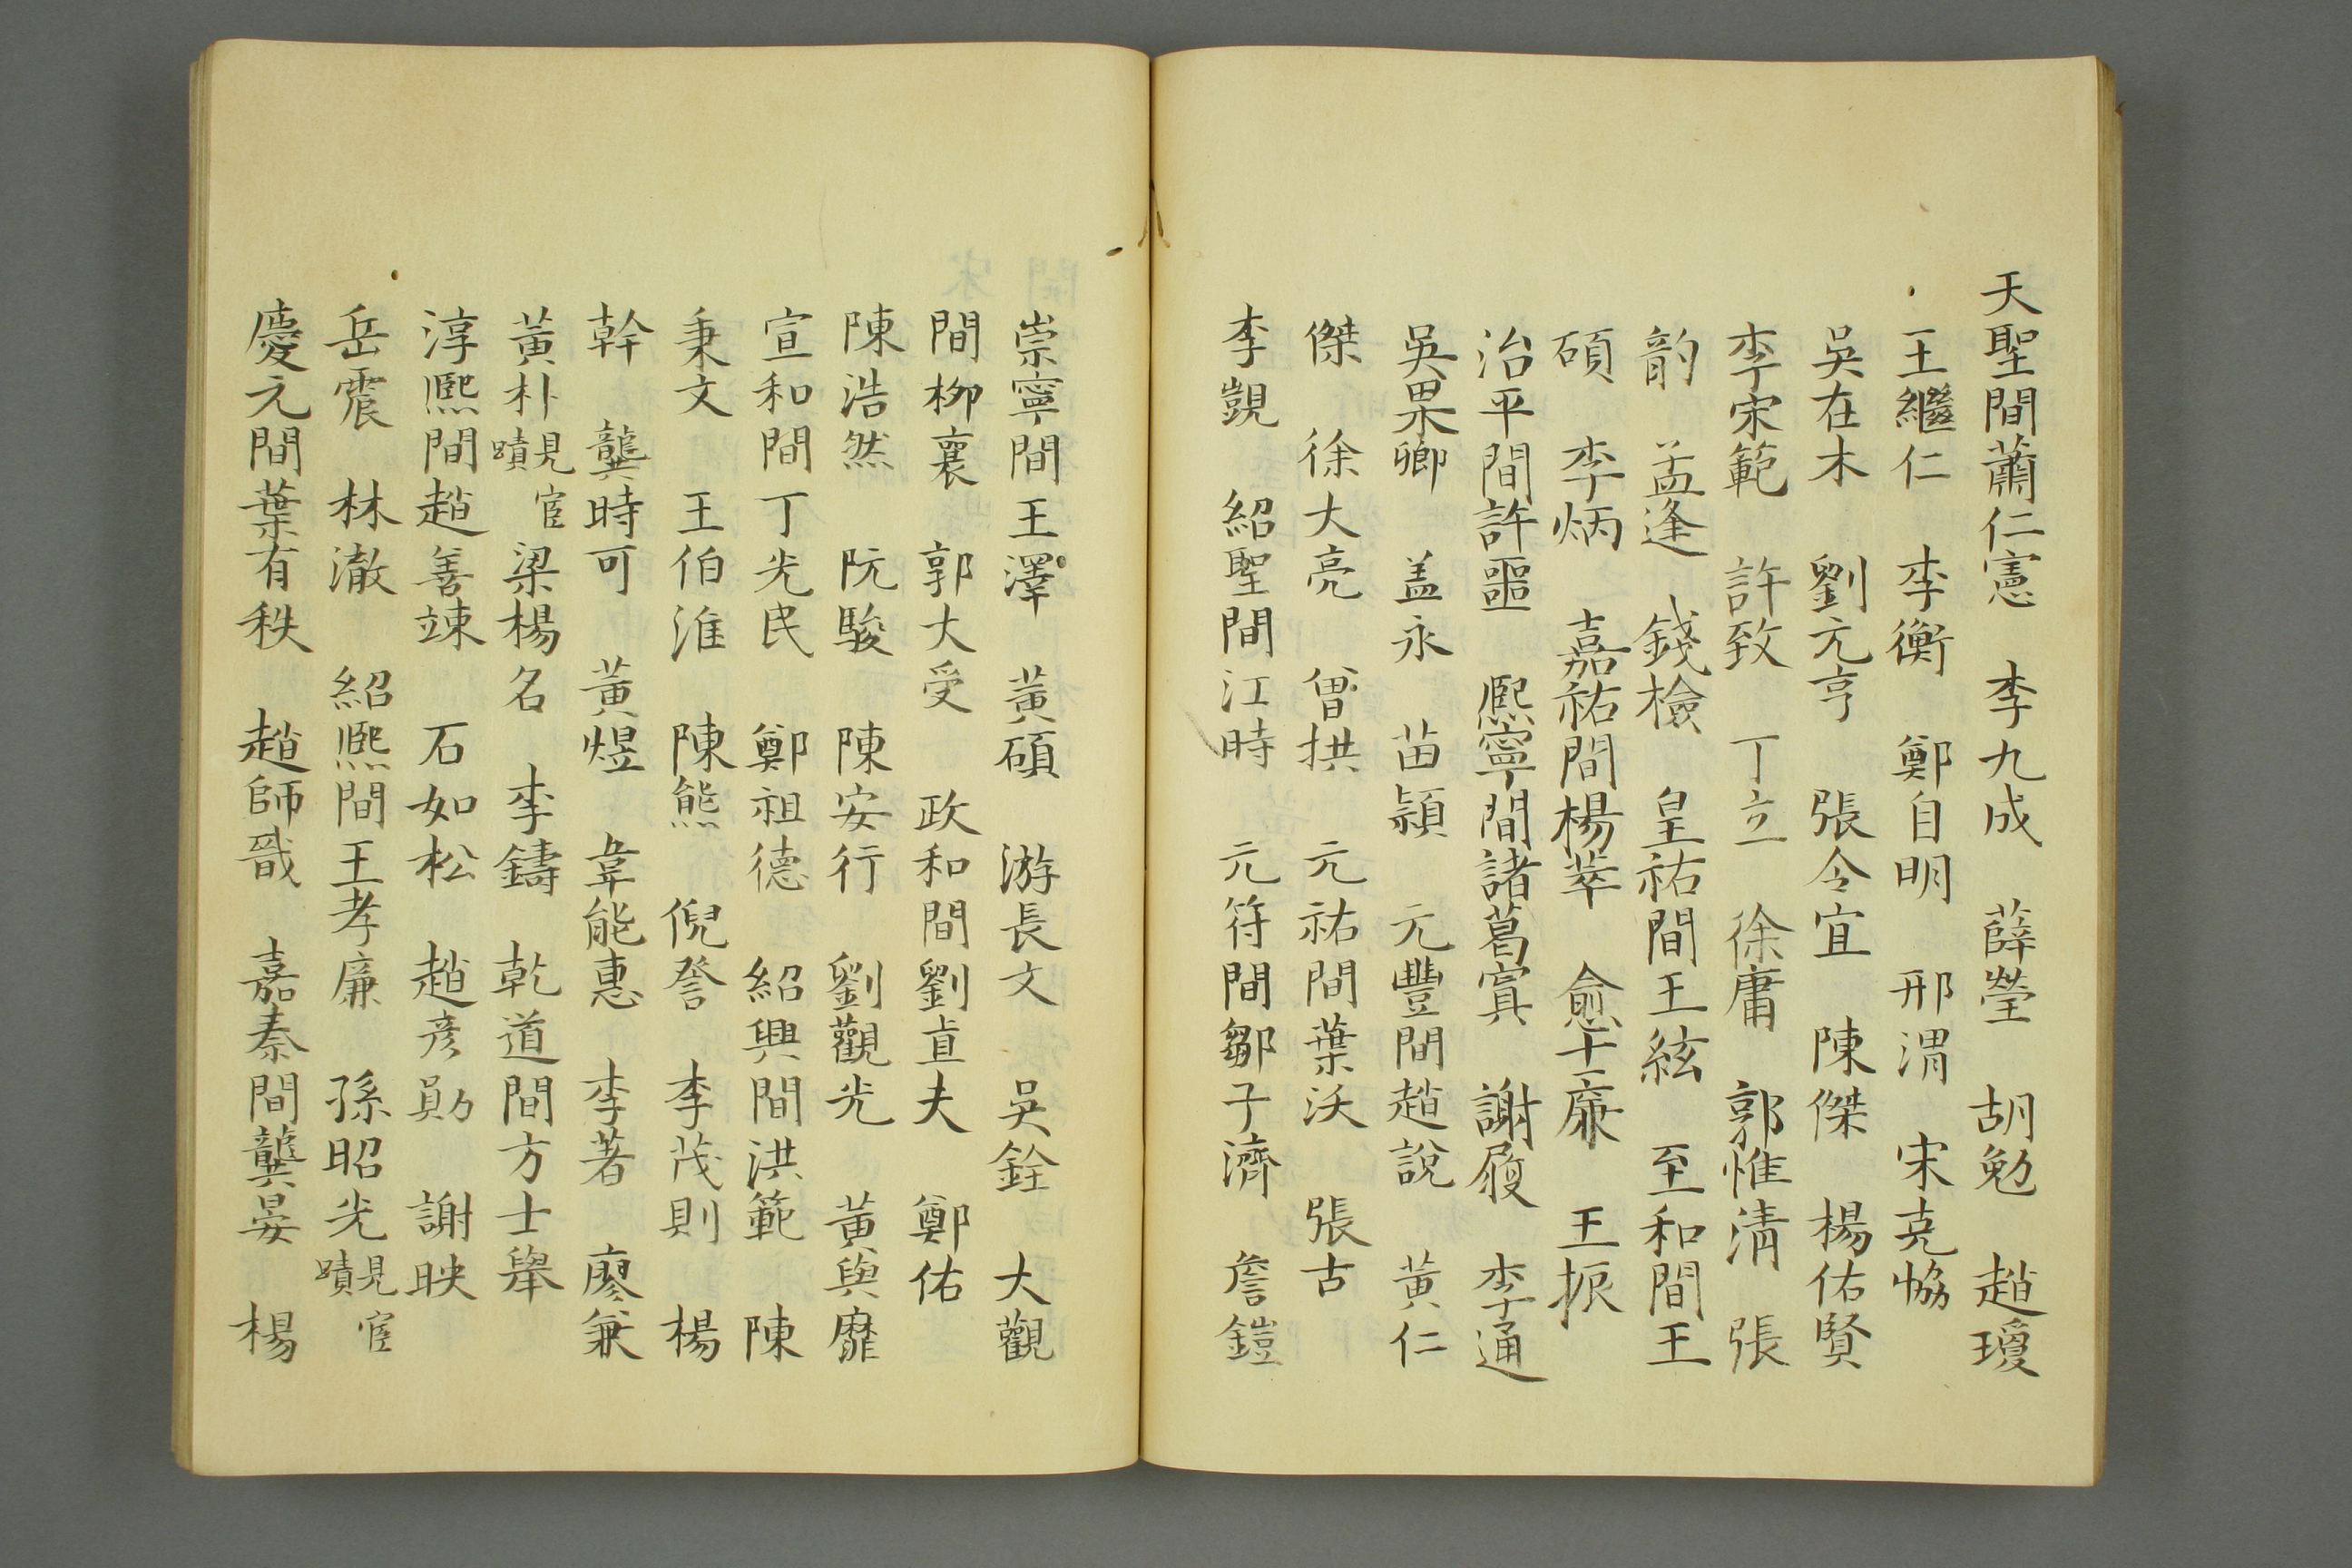 天聖間蕭仁憲　李九成　薛瑩　胡勉　趙瓊
王繼仁　李衡　鄭自明　邢渭　宋克恊
吳在木　劉元亨　張令宜　陳傑　楊佑賢
李宋範　許致　丁立　徐庸　郭惟清　張
韵　孟逢　錢檢　皇祐間王絃　至和間王
碩　李炳　嘉祐間楊萃　愈士廉　王振
治平間許噩　熙寧間諸葛寘　謝履　李通
吳杲卿　盖永　苗穎　元豐間趙說　黃仁
傑　徐大亮　曾拱　元祐間葉沃　張古
李覬　紹聖間江時　元符間鄒子濟　詹鎧
崇寧間王澤　黃碩　游長文　吳銓　大觀
間柳襄　郭大受　政和間劉直夫　鄭佑
陳浩然　阮駿　陳安行　劉觀光　黃與
宣和間丁光民　鄭祖德　紹興間洪範　陳
秉文　王伯淮　陳熊　倪詧　李茂則　楊
幹　龔時可　黃煜　韋能惠　李著　廖兼
黃朴見宦蹟　梁楊名　李鑄　乾道間方士舉
淳熙間趙善竦　石如松　趙彥勛　謝映
岳震　林澈　紹熙間王孝廉　孫昭光見宦蹟
慶元間葉有秩　趙師戩　嘉泰間龔晏　楊